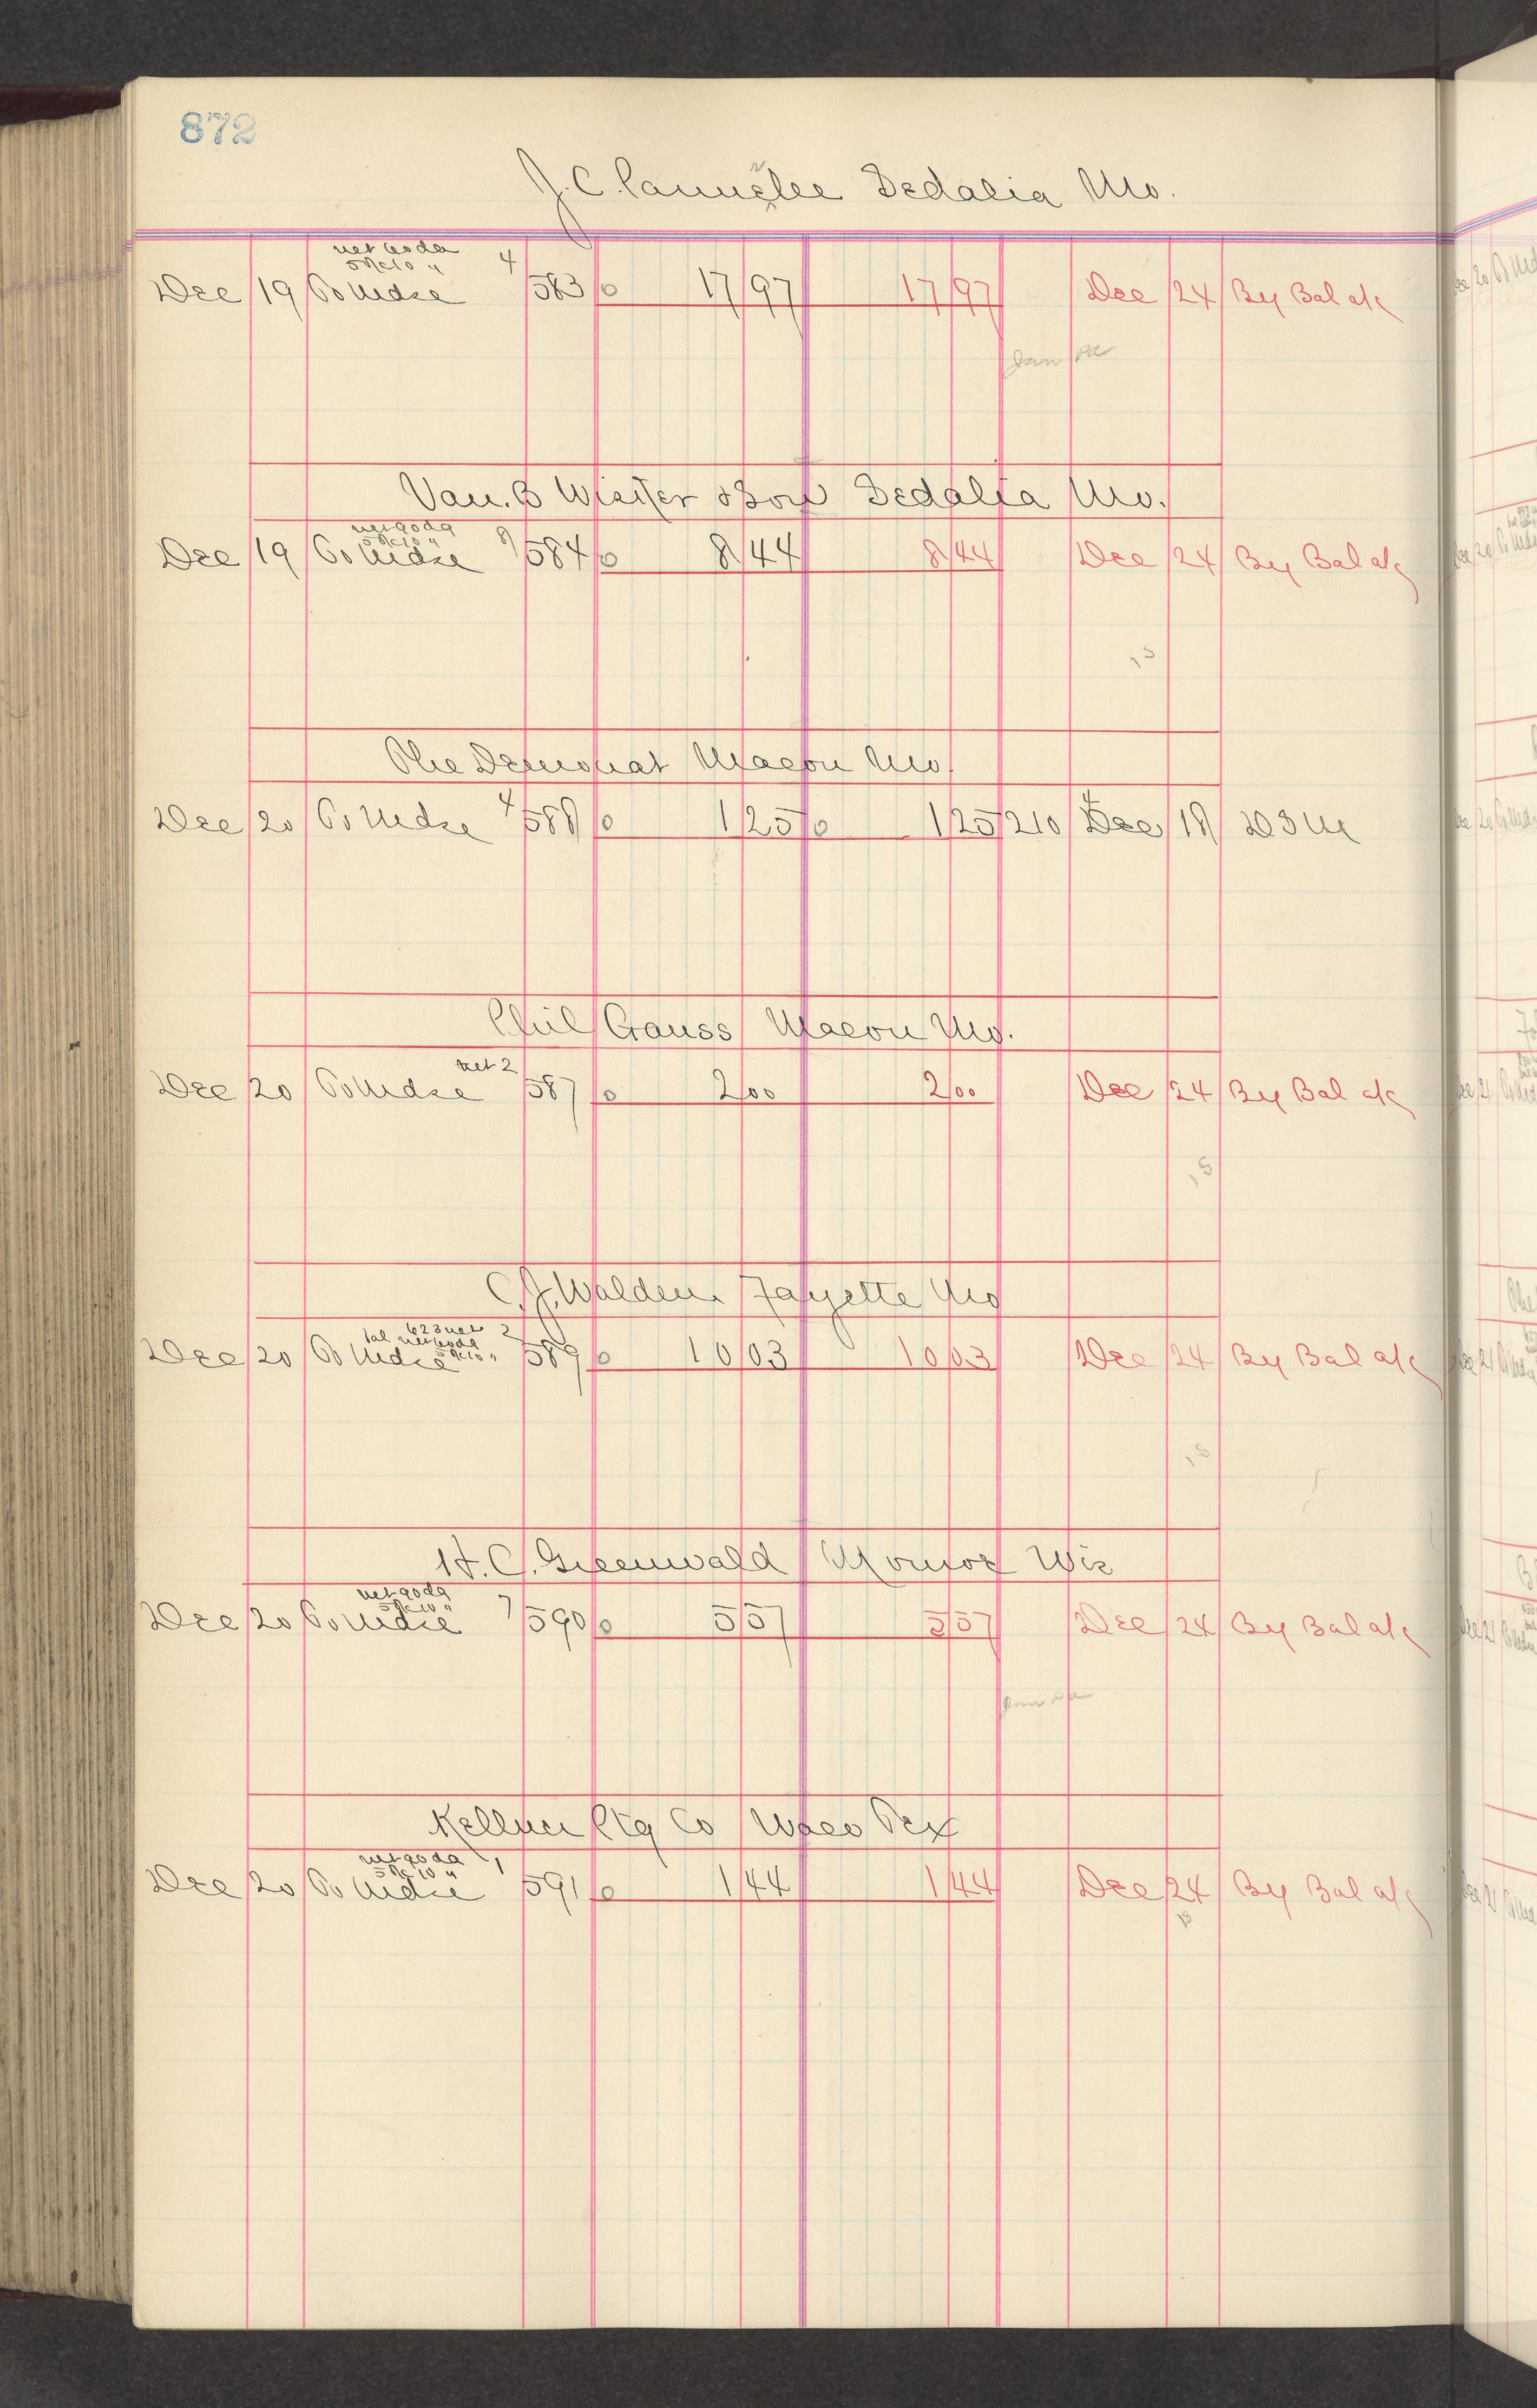 872
J. C. Parmelee Sedalia Mo.
net 60 da
5% 10 "
Dec 19 To Mdse 4 583 17 97 17 97 Dec 24 By Bal a/c
Jan
Van. B Wisker & Son Sedalia Mo.
net 90 da
5% 10 "
Dec 19 To Mdse 8 584 8 44 8 44 Dec 24 By Bal a/c
The Democrat Macon Mo.
Dec 20 To Mdse 4 588 1 25 1 25 210 Dec 18
Phil Gauss Macon Mo.
net 2
Dec 20 To Mdse 587 2 00 2 00 Dec 24 By Bal a/c
C. J. Walden Fayette Mo
623 net 2
bal net 60 da
5% 10 "
Dec 20 To Mdse 589 10 03 10 03 Dec 24 By Bal a/c
H. C. Greenwald Monroe Wis
net 90 da
5% 10 "
Dec 20 To Mdse 7 590 5 57 5 57 Dec 24 By Bal a/c
Kellner Ptg Co Waco Tex
net 90 da
5% 10 "
Dec 20 To Mdse 1 591 1 44 1 44 Dec 24 By Bal a/c